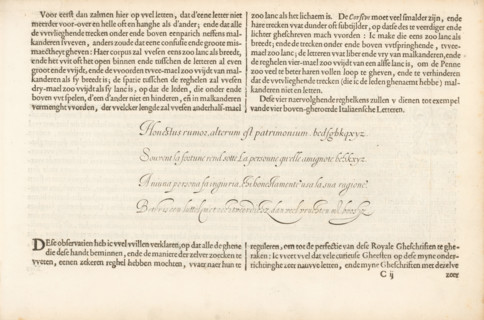 Voor eerst dan zalmen hier op vvel letten, dat d'eene letter niet
meerder voor-over en helle oft en hanghe als d'ander; ende dat alle
de vvrvlieghende trecken onder ende boven eenparich neffens mal-
kanderen svveven, anders zoude dat eene confuse ende groote mis-
maectheyt gheven: Haer corpus zal vvesen eens zoo lanc als breedt,
ende het vvit oft het open binnen ende tusschen de letteren al even
groot ende vvijdt, ende de vvoorden tvvee-mael zoo vvijdt van mal-
kanderen als sy breedt is; de spatie tusschen de reghelen zal vvesen
dry-mael zoo vvijdt als sy lanc is, op dat de leden, die onder ende
boven uvt spelen, d'een d'ander niet en hinderen, en in malkanderen
vermenght vvorden, der vvelcker lengde zal vvesen anderhalf-mael
zoo lanc als het lichaem is. De Corsive moet vvel smalder zijn, ende
hare trecken vvat dunder oft subtijlder, op datse des te veerdiger ende
lichter gheschreven mach vvorden: Ic make die eens zoo lanc als
breedt; ende de trecken onder ende boven uvtspringhende, tvvee-
mael zoo lanc; de letteren vvat liber ende vry van malkanderen, ende
de reghelen vier-mael zoo vvijdt van een alsse lanc is, om de Penne
zoo veel te beter haren vollen loop te gheven, ende te verhinderen
dat de vvtvlieghende trecken (die ic de leden ghenaemt hebbe) mal-
kanderen niet en letten.
Dese vier naervolghende reghelkens zullen v dienen tot exempel
van de vier boven-gheroerde Italizensche Letteren.
Honestus rumor, alterum est patrimonium. bcdfghkqxyz.
Souvent la fortune rend sotte La personne qu'elle amignote
A niuna persona fa ingiuria, Chi honestamente usa la sua
DEse observatien heb ic vvel vvillen verklaren, op dat alle de ghene
die dese handt beminnen, ende de maniere der zelver zoecken te
vveten, eenen zekeren reghel hebben mochten, vvaer naer hun te
reguleren, een tot de perfectie van dese Royale Gheschriften te ghe-
raken: Ic vveet vvel dat vele curieuse Gheesten op dese myne onder-
richtinghe zeer nauvve letten, ende myne Gheschriften met de zelve
C ij zeer